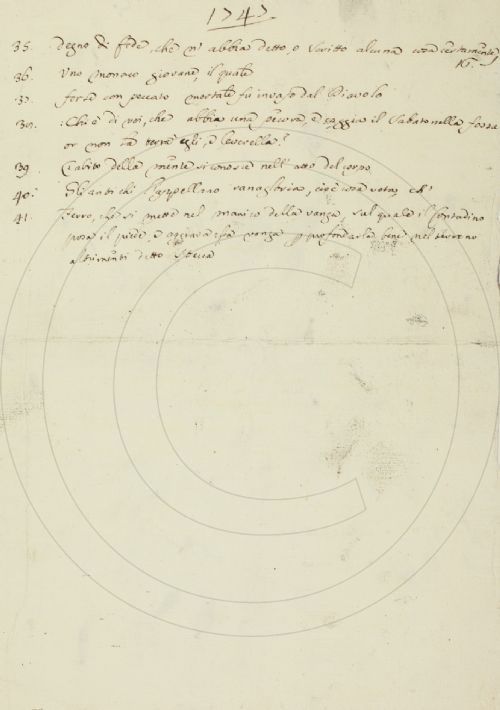 1747
35. Degno di fede, che n' abbia detto, o scritto alcuna cosa certamente
16.
36. Uno monaco giovane, il quale
37. forse con peccato mortale fu invaso dal Diavolo
38. Chi è di voi, che abbia una pecora, e caggia il Sabato nella fossa
or non la torrà egli, e leverella?
39. L'abito della mente si conosce nell' atto del corpo
40. Gli antichi l'appellaro vanagloria, cioè cosa vota,
41. Ferro, che si mette nel manico della vanga, sul quale il Contadino
posa il piede, e aggrava vanga profondarla bene nel terreno
altrimenti detto Stecca